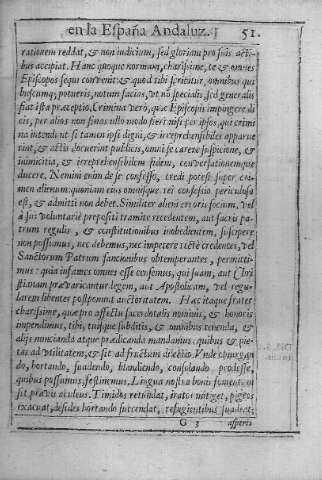 en la España Andaluz. 51.
rationem reddat, & non iudicium, sed gloriam pro suis actibus accipiat. Hanc quoque normam, charissime, te & omnes
Episcopos sequi convenit: & quod tibi scribitur, omnibus quibuscumq; potueris, notum facias, ut nō specialis, sed generalis
fiat ista præceptio. Crimina verò, quæ Episcopis impingere dicis, per alios non sinas
na intendunt si tamen ipsi digni, & irreprehensibiles apparuerint, & actis docuerint publicis, omni se carere suspicione, &
inimicitia, & irreprehensibilem fidem, conversationemque
ducere. Nemini enim de se confesso, credi potest super crimen alienum: quoniam eius omnisque rei confessio periculosa
est, & admitti non debet. Similiter alieni erroris socium, vel
à sui voluntariè propositi tramite recedentem, aut sacris patrum regulis, & constitutionibus inobedientem, suscipere
non possumus, nec debemus, nec impetere rectè credentes, vel
Sanctorum Patrum sanctionibus obtemperantes, permittimus: quia infames omnes esse censemus, qui suam, aut Christianam prævaricantur legem, aut Apostolicam, vel regularem libenter postponunt auctoritatem. Hæc itaque frater
charissime, quæ pro affectu sacerdotalis nominis, & honoris
impendimus, tibi, tuisque subditis, & omnibus tenenda, &
aliis nuncianda atque prædicanda mandamus. quibus & pietas ad utilitatem, & sit ad fructum directio. Unde obiurgando, hortando, suadendo, blandiendo, consolando prodesse,
quibus possumus, festinemus. Lingua nostra bonis fomentum
sit pravis aculeus. Timidos retundat, iratos mitiget, pigros
exacuat, desides hortando succendat, refugientibus suadeat:
G 3 asperis